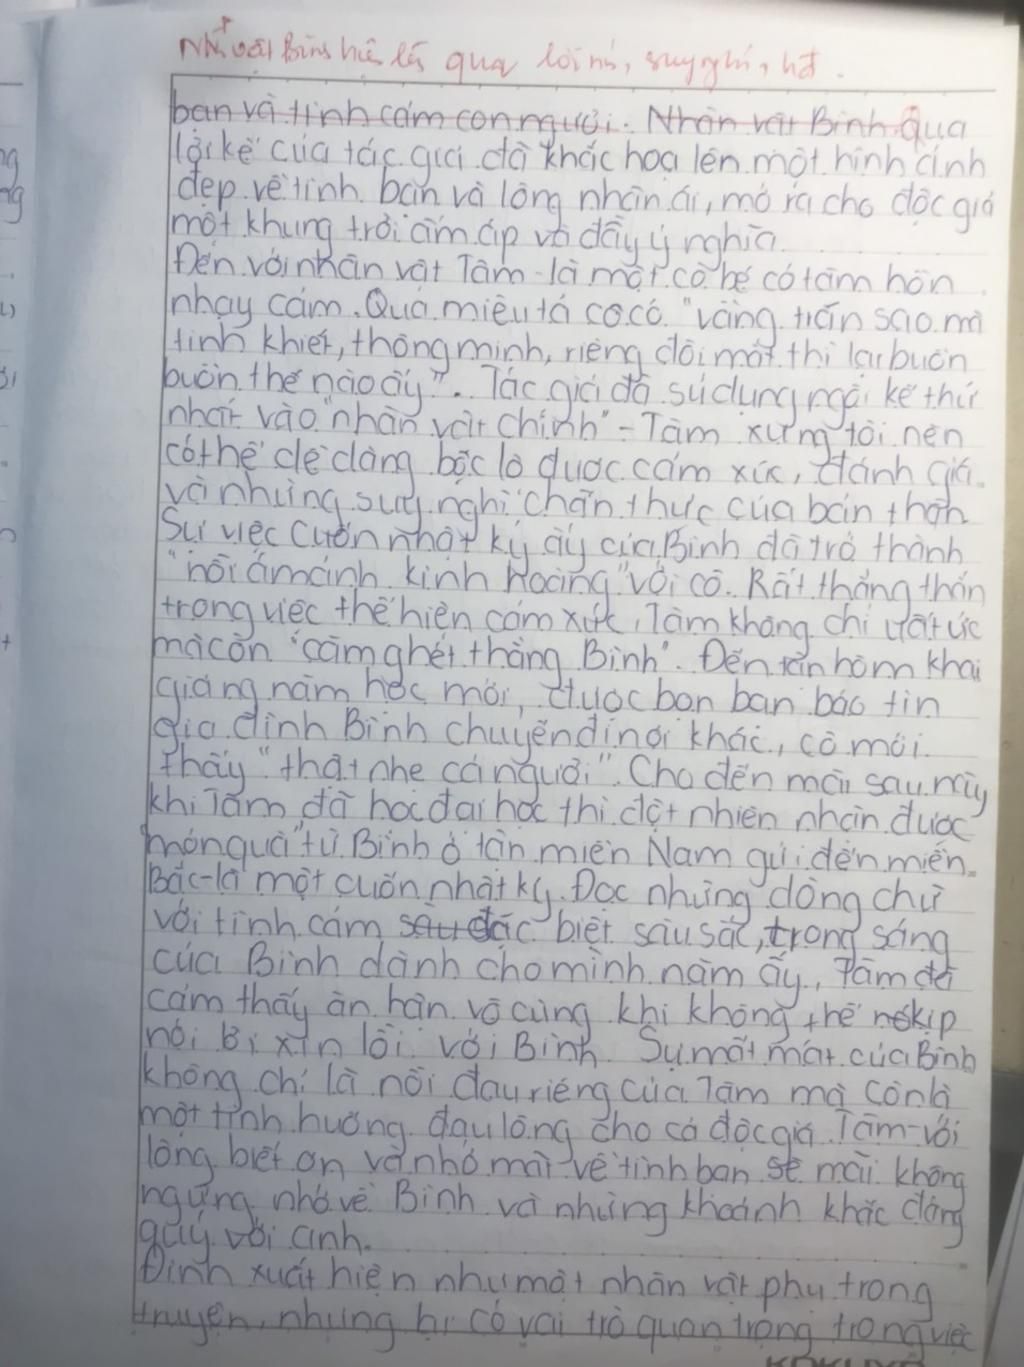 Nh vật Bình hiện lên qua lời nói, suy nghĩ, hđ.
bạn và tình cảm con người. Nhân vật Bình Qua
lời kể của tác giả đã khắc hoạ lên một hình ảnh
đẹp về tình bạn và lòng nhân ái, mở ra cho độc giả
một khung trời ấm áp và đầy ý nghĩa.
Đến với nhân vật Tâm - là một cô bé có tâm hồn
nhạy cảm. Qua miêu tả cô có "vầng trán sao mà
tinh khiết, thông minh, riêng đôi mắt thì lại buồn
buồn thế nào ấy". Tác giả đã sử dụng ngôi kể thứ
nhất vào "nhân vật chính" - Tâm xưng tôi nên
có thể dễ dàng bộc lộ được cảm xúc, đánh giá
và những suy nghĩ chân thực của bản thân
Sự việc cuốn nhật ký ấy của Bình đã trở thành
"nỗi ám ảnh kinh hoàng" với cô. Rất thẳng thắn
trong việc thể hiện cảm xúc, Tâm không chỉ uất ức
mà còn "căm ghét thằng Bình". Đến tận hôm khai
giảng năm học mới, được bạn bạn báo tin
gia đình Bình chuyển đi nơi khác, cô mới
thấy "thật nhẹ cả người". Cho đến mãi sau này
khi Tâm đã học đại học thì đột nhiên nhận được
"món quà" từ Bình ở tận miền Nam gửi đến miền
Bắc - là một cuốn nhật ký. Đọc những dòng chữ
với tình cảm sâu đặc biệt sâu sắc, trong sáng
của Bình dành cho mình năm ấy, Tâm đã
cảm thấy ân hận vô cùng khi không thể kịp
nói lời xin lỗi với Bình. Sự mất mát của Bình
không chỉ là nỗi đau riêng của Tâm mà còn là
một tình huống đau lòng cho cả độc giả. Tâm - với
lòng biết ơn và nhớ mãi về tình bạn sẽ mãi không
ngừng nhớ về Bình và những khoảnh khắc đáng
quý với anh.
Định xuất hiện như một nhân vật phụ trong
truyện, nhưng lại có vai trò quan trọng trong việc